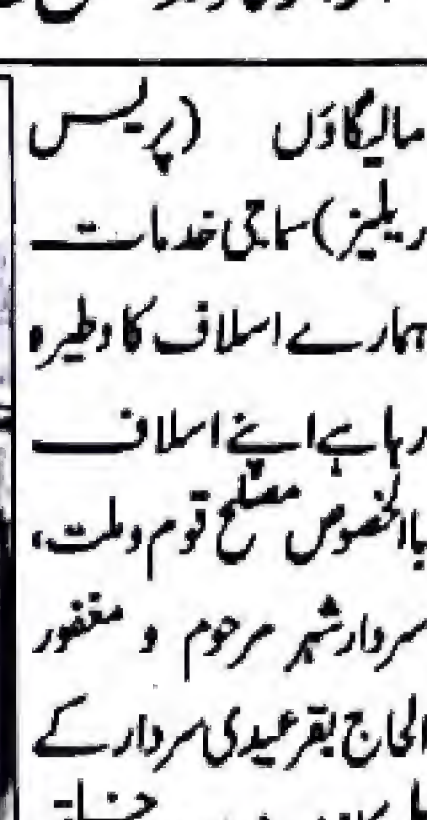 مالیگاؤں (پریس
ریلیز) سماجی خدمات
ہمارے اسلاف کا وطیرہ
رہا ہے اپنے اسلاف
باالخصوص مصلح قوم و ملت،
سردار شہر مرحوم و مغفور
الحاج بقرعیدی سردار کے